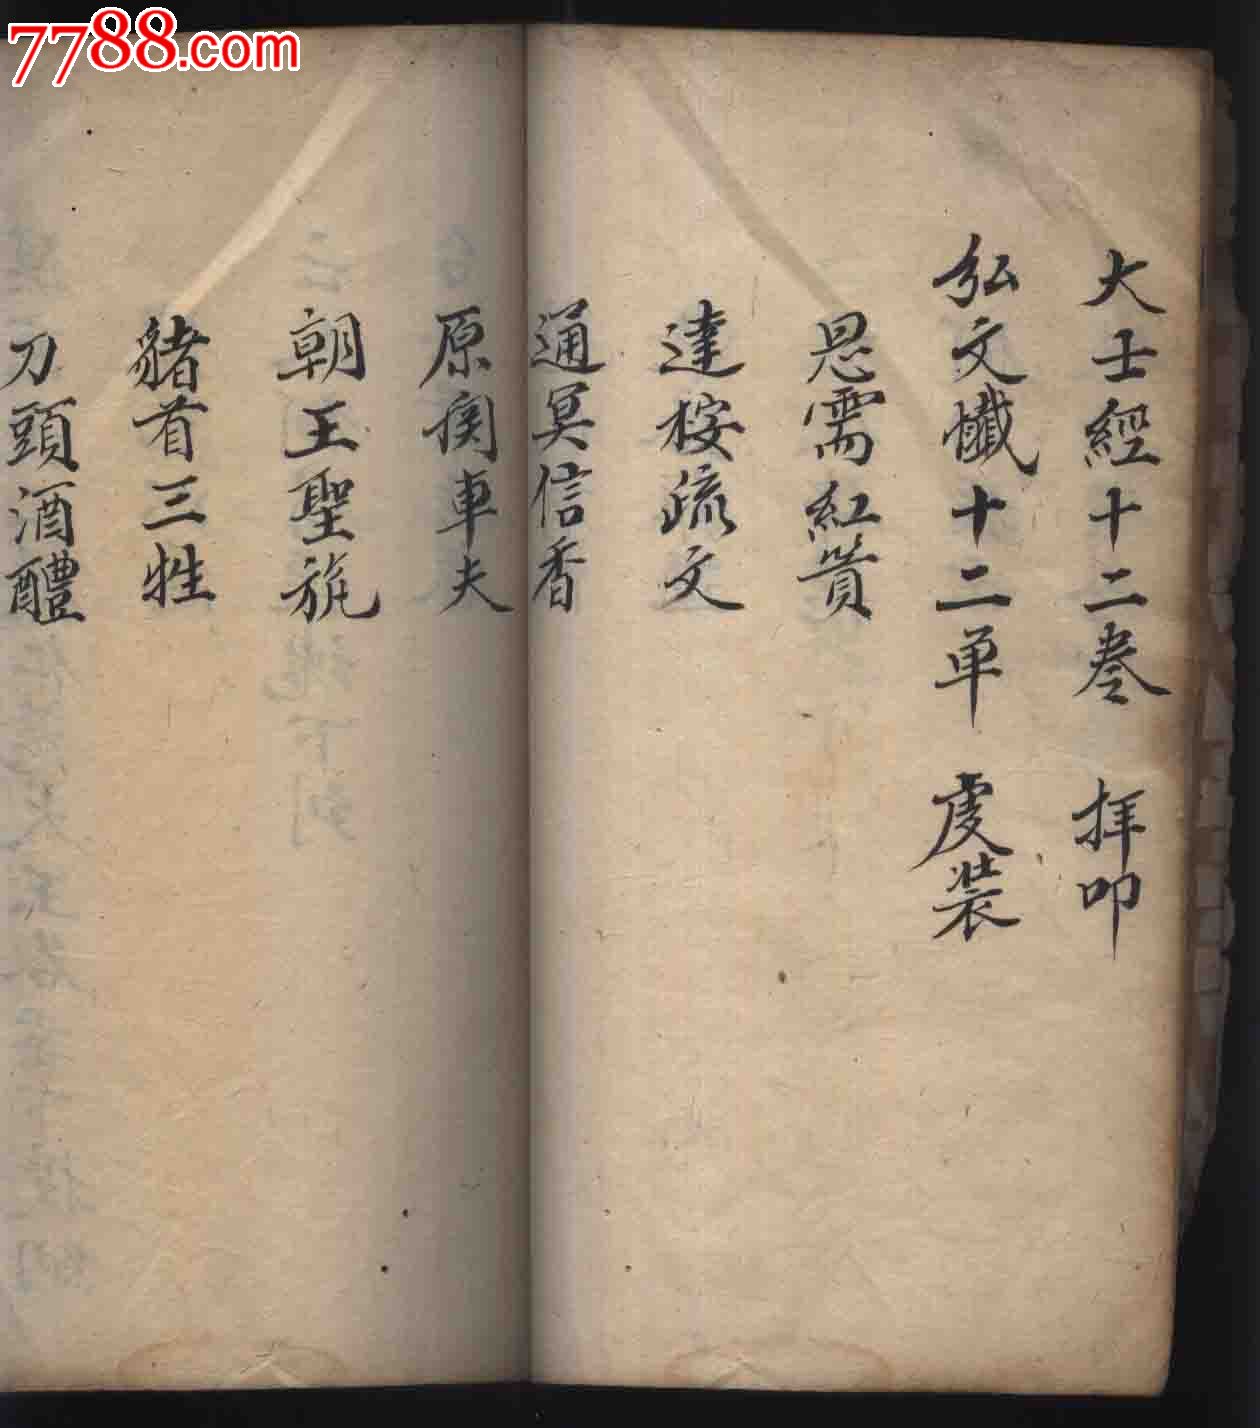 7788.com
大士經十二卷 拜叩
弘文懺十二单 虔装
恩需紅貲
達桉疏文
通冥信香
原疾車夫
朝王聖旎
豬首三牲
刀頭酒醴